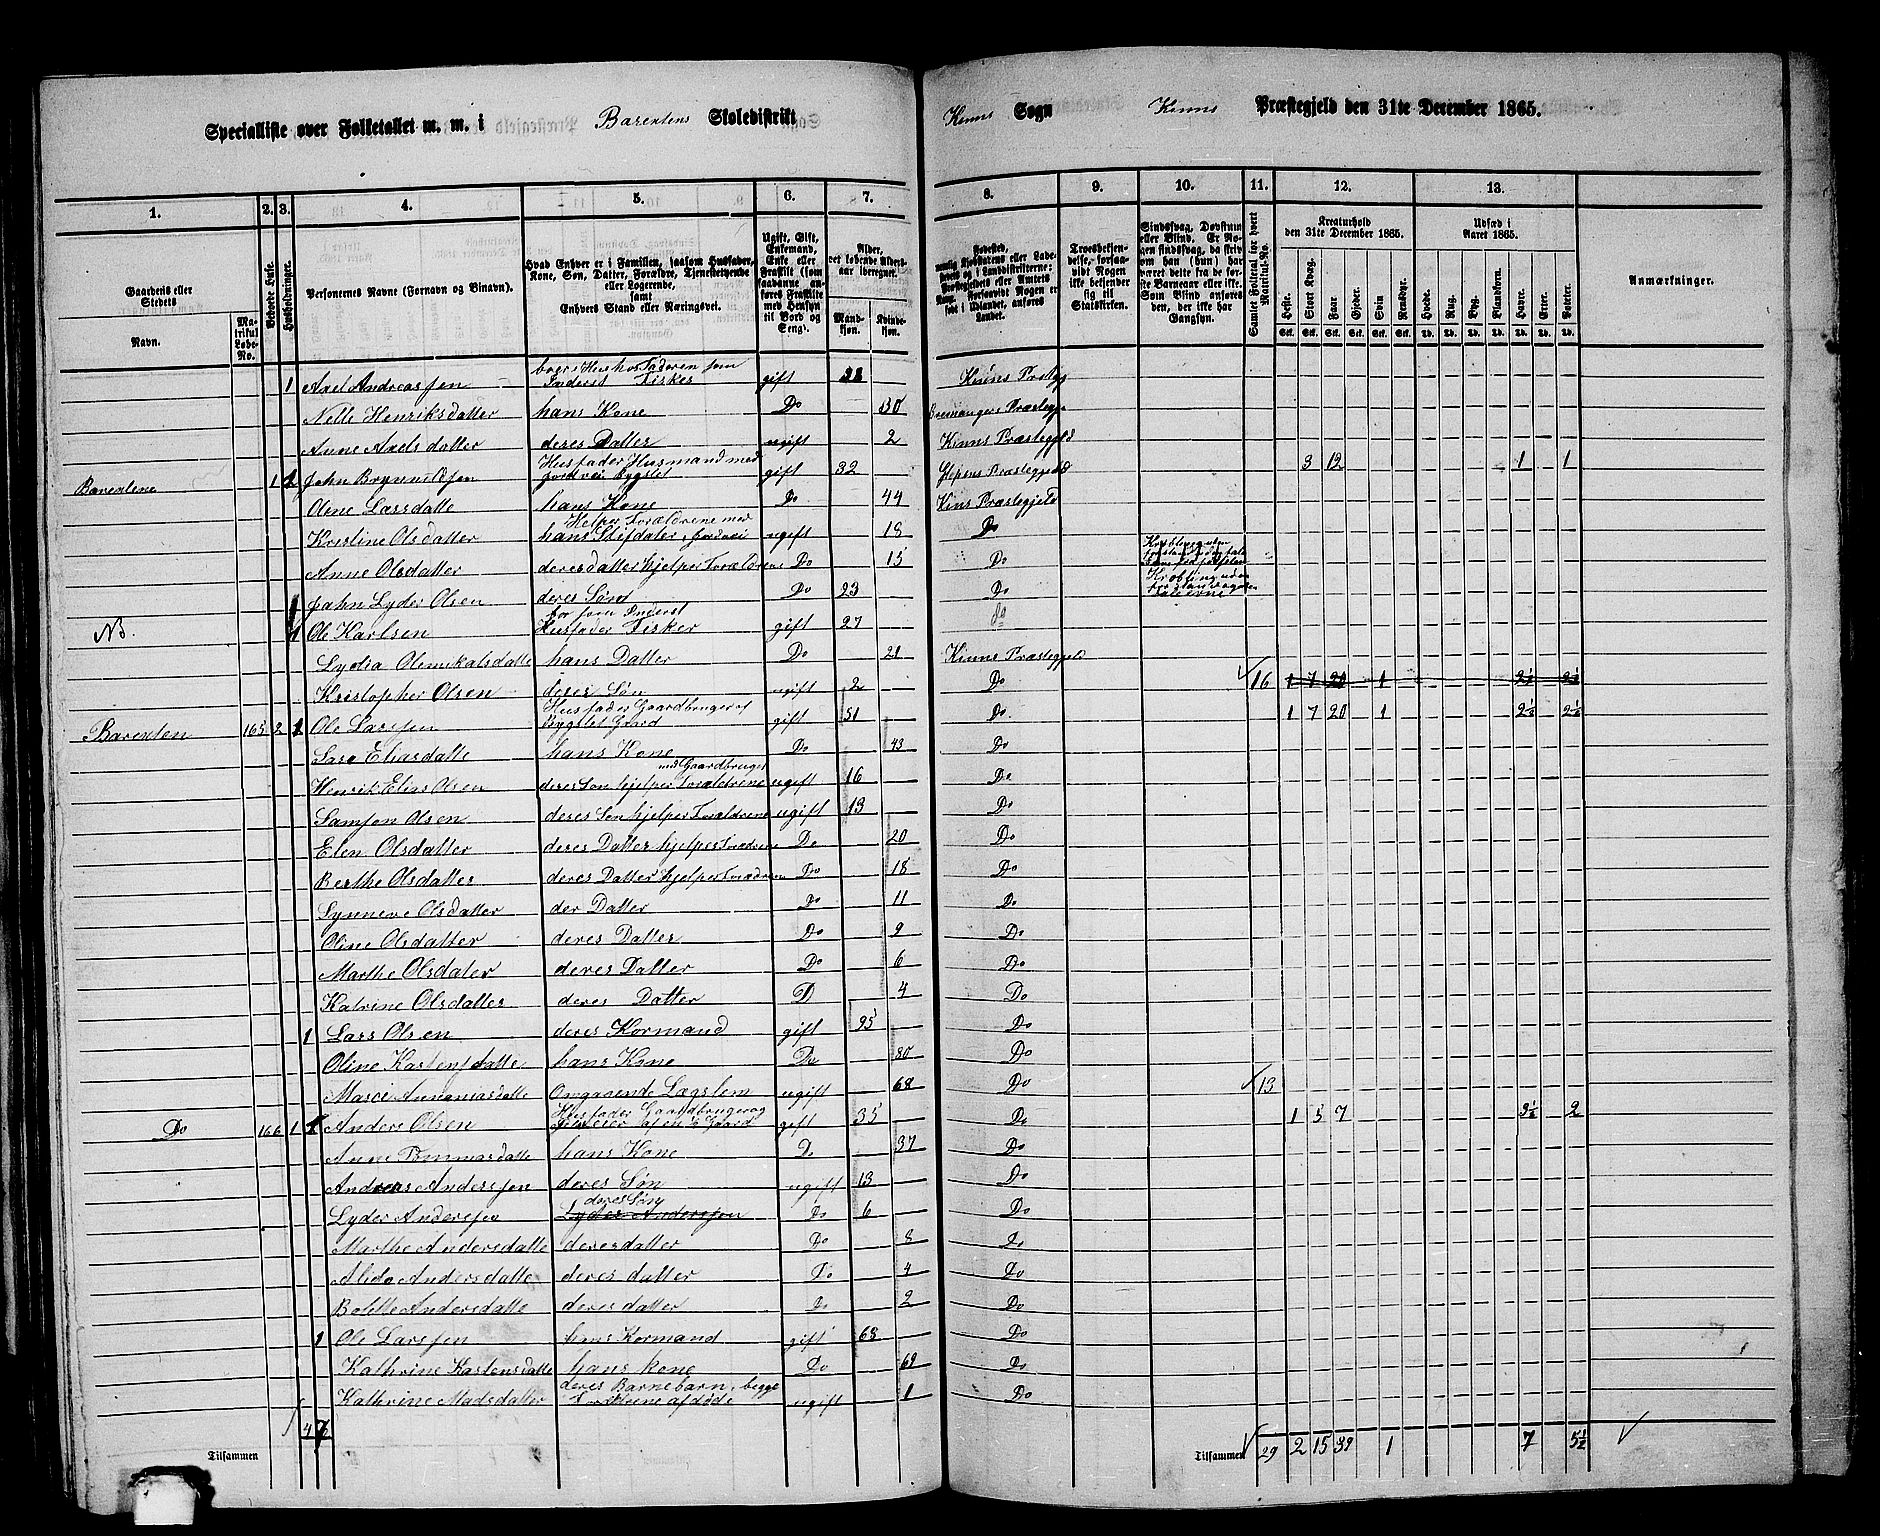 Specialliste over Folketallet m. m. i Barextens Skoledistrikt
Kinns Sogn Kinns Præstegjeld den 31te December 1865.
1. 2. 3. 4. 5. 6. 7. 8. 9. 10. 11. 12. 13.
Gaardens eller Stedets
Navn.
Matrikul Løbe-No.
Beboede Huse.
Husholdninger.
Personernes Navne (Fornavn og Binavn).
Hvad Enhver er i Familien, saasom Husfader, Kone, Søn, Datter, Forældre, Tjenestetyende eller Logerende, samt Enhvers Stand eller Næringsvei.
Ugift, Gift, Enkemand, Enke eller Fraskilt (som saadanne anføres Fraskilte med Hensyn til Bord og Seng).
Alder, det løbende Aldersaar iberegnet.
Mandkjøn.
Kvindekjøn.
Troesbekjendelse, forsaavidt Nogen ikke bekjender sig til Statskirken.
Sindssvag, Døvstum eller Blind. Er Nogen sindssvag, da skriv om han (hun) har været dette fra de første Barneaar eller ikke. Som Blind anføres der, der ikke har Gangsyn.
Samlet Folketal for hvert Matrikul-No.
Kreaturhold den 31te December 1865.
Heste. Stort Kvæg. Faar. Gjeder. Svin. Rensdyr.
Udsæd i Aaret 1865.
Hvede. Rug. Byg. Blandkorn. Havre. Erter. Poteter.
Anmærkninger.
1 Axel Andreassen Inderst Fisker gift 31 Kinns Prstgj
Nelle Henriksdatter hans Kone Do 30 Bremangers Præstegj
Anne Axelsdatter deres Datter ugift 2 Kinns Præstegjeld
Barextene 1 1 John Brynnildsen Husfader Husmand med Jordvei Bygslet gift 32 Præstegjeld 3 12 1 1
Larsdatte hans Kone Do 44 Kins Præstegjeld
Kristine Olsdatter Hjelper Forældrene med hans Stifdater ugift 18 Do
Anne Olsdatter deres datter hjelper Forældrene Do 15 Do
Jahn Lyder Olsen deres Søn Do 23 Do
NB. 1 Ole Karlsen Husfader Fisker gift 27 do
Lydia hans Datter Do 21 Kinns Præstegjeld
Kristopher Olsen deres Søn ugift 2 Do 16 1 7 20 1 2½ 2½
Barexten 165 2 1 Ole Larssen Husfader Gaardbruger af Bygslet Gaard gift 51 Do. 1 7 20 1 2½ 2½
Sara Eliasdatte hans Kone Do 43 Do
Henrik Elias Olsen deres Søn hjelper Forældrene med Gaardbruget ugift 16 Do
Samson Olsen deres Søn hjelper Forældrene ugift 13 Do
Elen Olsdatter deres Datter hjelper Do 20 Do
Berthe Olsdatter deres Datter hjelper Do 18 Do
Synneve Olsdatter der Datter Do 11 Do
Oline Olsdatter deres Datter Do 9 Do
Marthe Olsdater deres Datter Do 6 Do
Katrine Olsdatter deres Datter D 4 Do
1 Lars Olsen deres Kormand gift 95 Do
Oline Kastensdatte hans Kone Do 80 Do
Omgaaende Lægslem ugift 68 Do 13
Do 166 1 1 Anders Olsen Husfader Gaardbruger og Selveier af en Gaard gift 35 Do 1 5 7 3½ 2
Anne Tommasdatte hans Kone D 37 Do
Andreas Anderssen deres Søn ugift 13 Do
Lyder Anderssen deres Søn Lyder Anderssen Do 6 Do
Marthe Andersdatte deres datter Do 8 Do
Alida Andersdatte deres datter Do 4 Do
Bolette Andersdatte deres datter Do 2 Do
1 Ole Larssen hans Kormand gift 68 Do
Kathrine Kastensdatte hans kone Do 69 Do
Kathrine Madsdatter deres Barnebarn, begge Forældrene afdøde ugift 1 Do
4 7
Tilsammen
Tilsammen 29 2 15 39 1 7 5½